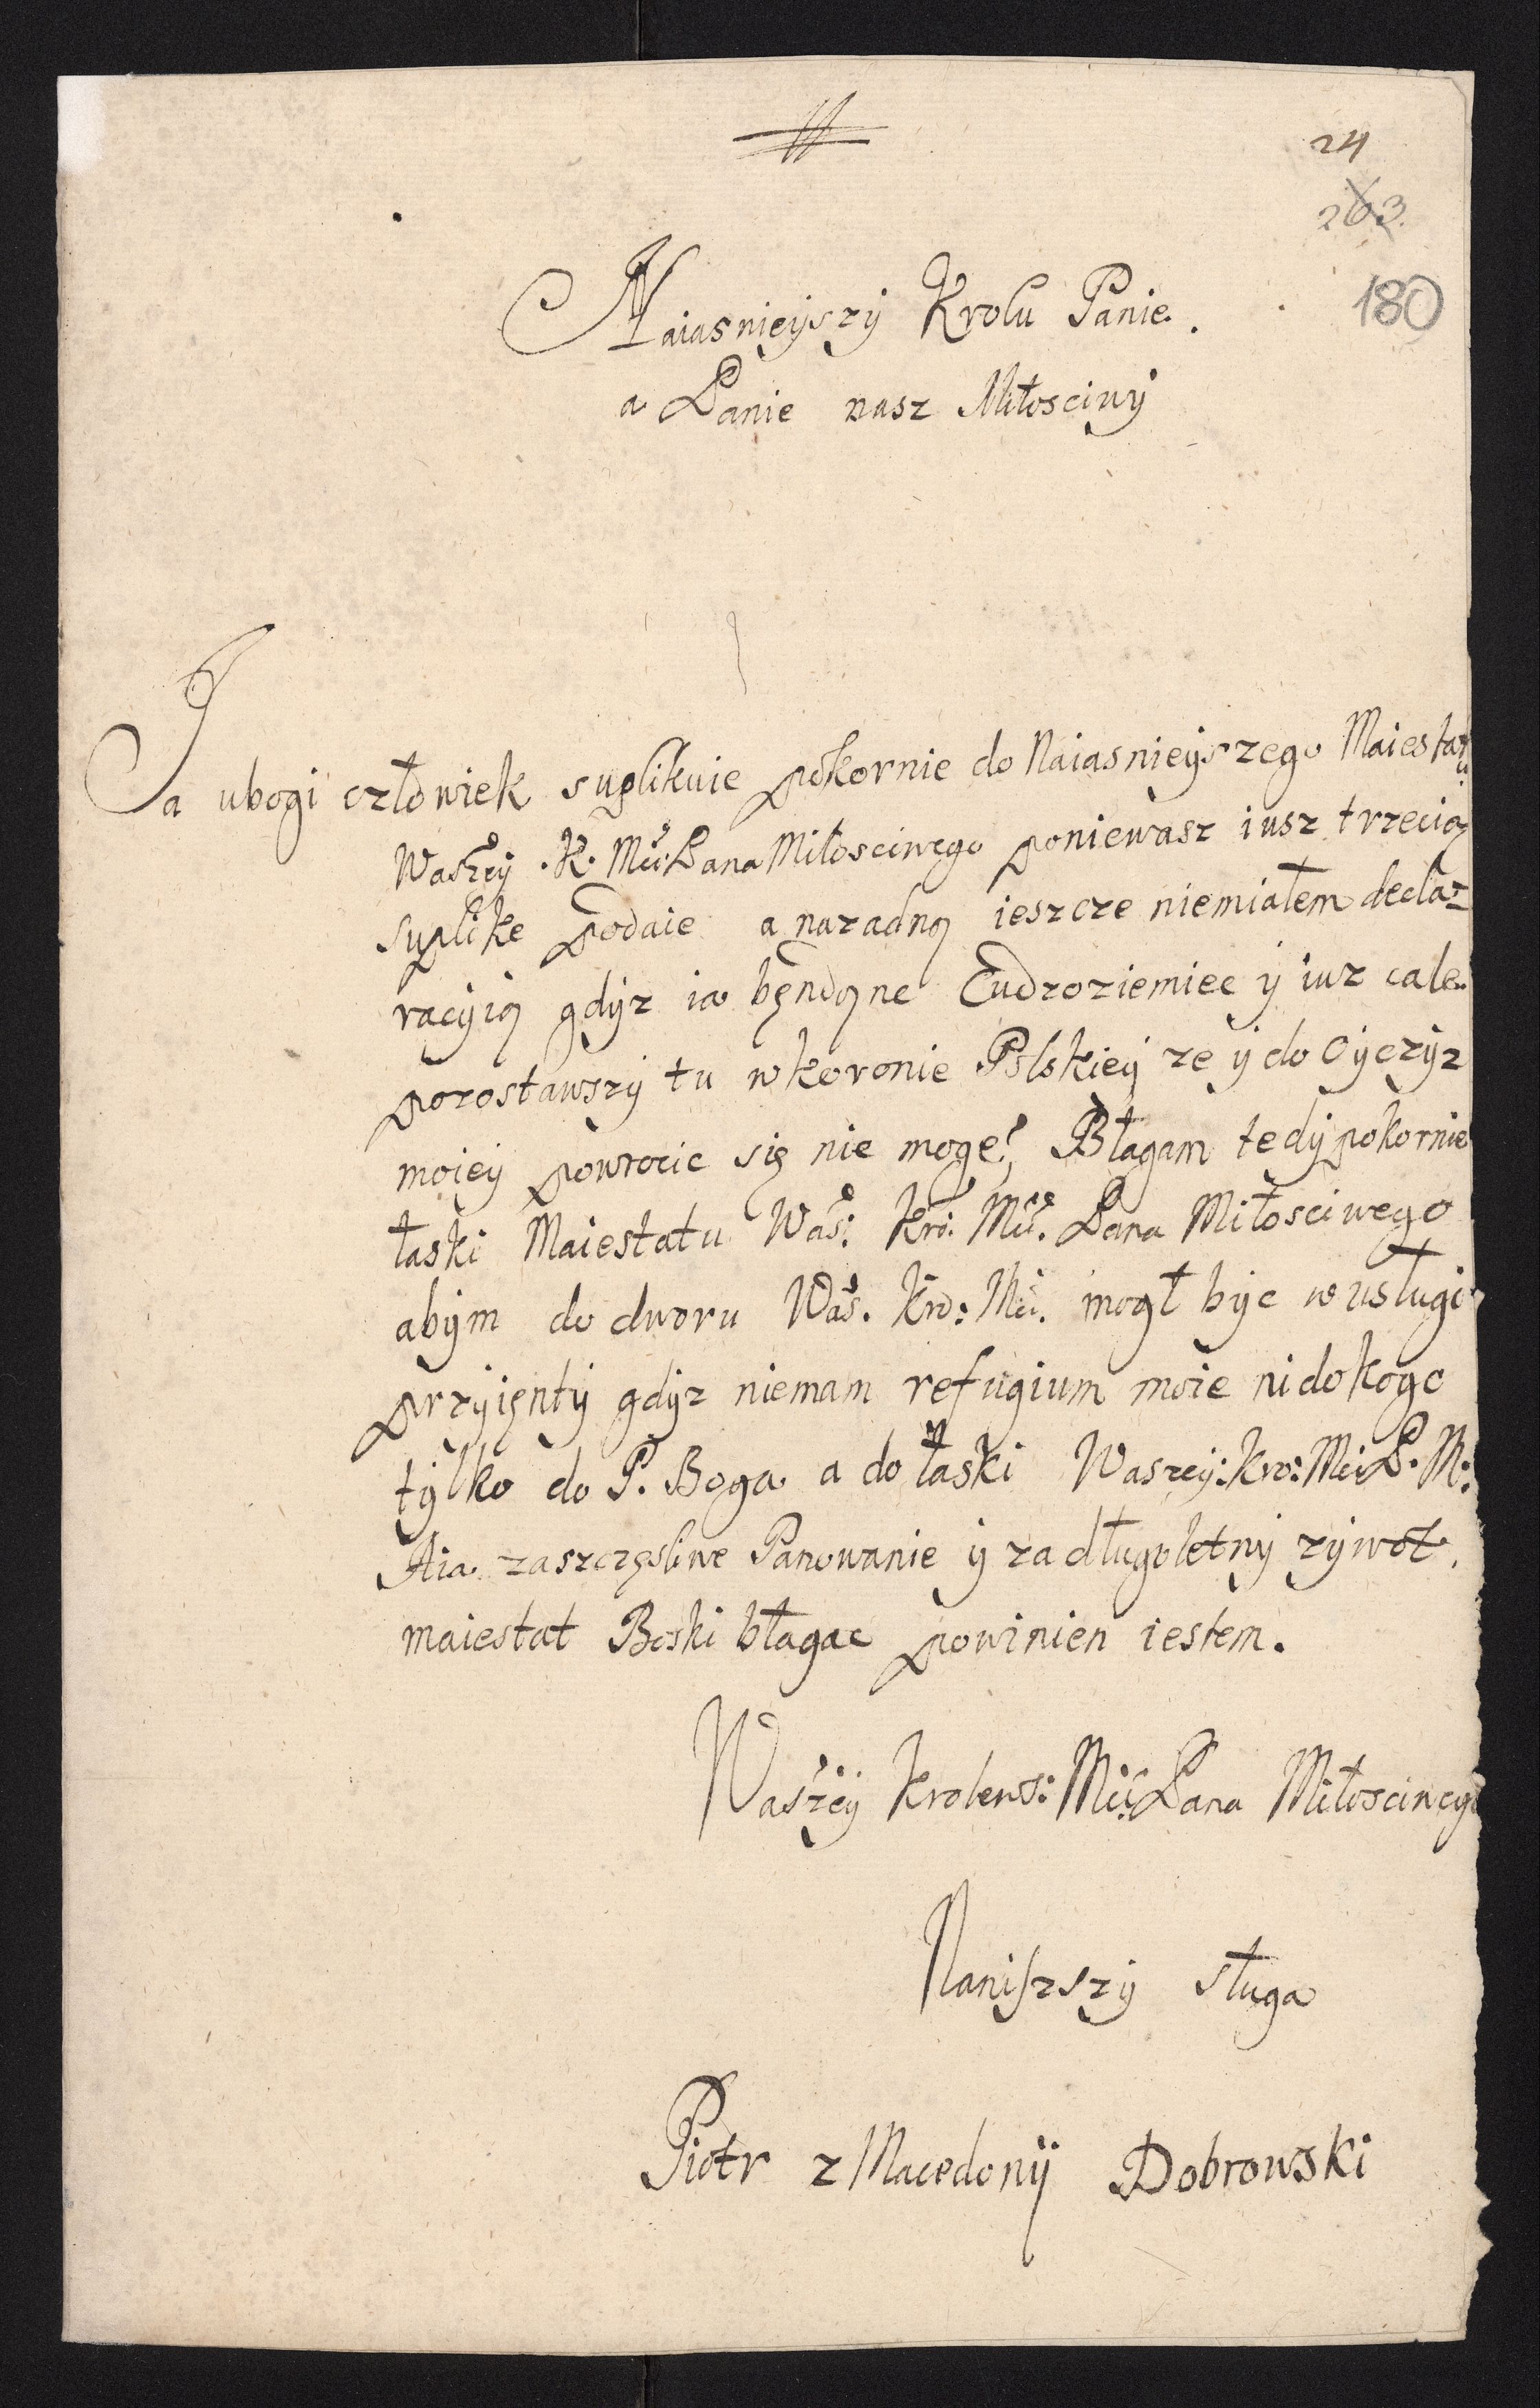 24
263.
180
Naiasnieyszy Krolu Panie.
a Panie nasz Miłosciwy
Ja ubogi człowiek suplikuie pokornie do Naiasnieyszego Maiestatu
Waszey. K. Mci: Pana Miłosciwego poniewasz iusz trzecią
suplike podaie a nazadną ieszcze niemiałem decla=
racyią gdyz ia będąnc Cudzoziemiec y iuz cale
pozostawszy tu w koronie Polskiey ze y do Oyczyz
moiey powrocic się nie moge! Błagam tedy pokornie
łaski Maiestatu Was: Kro: Mci. Pana Miłosciwego
abym do dworu Was. Kro: Mci. mogł byc w usługi
przyięnty gdyz niemam refugium moie nidokogo
tylko do P. Boga a do łaski Waszey: Kro: Mci P. M:
Aia zaszczęsliwe Panowanie y za długoletny zywot.
maiestat Boski błagac powinien iestem.
Waszey Krolews: Mci: Pana Miłosciwego
Naniszszy sługa
Piotr z Macedonij Dobrowski